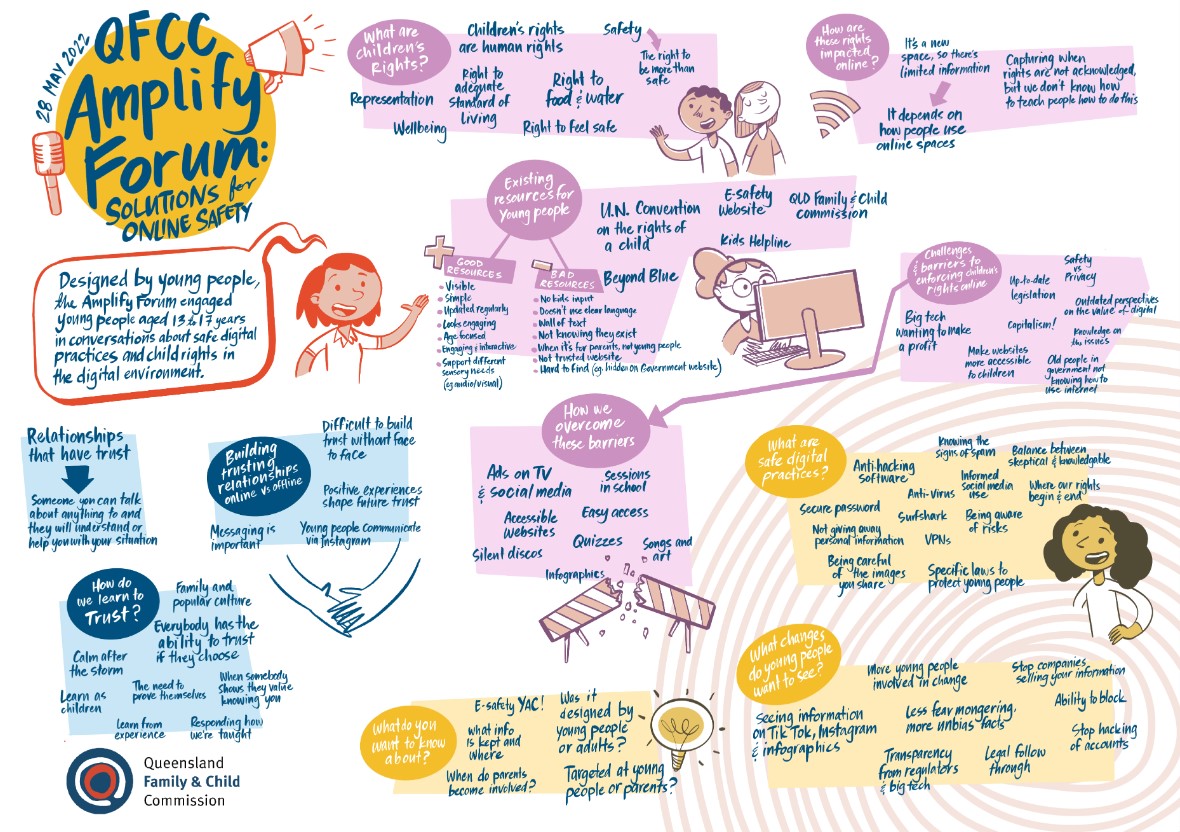 28 MAY 2022
QFCC
Amplify
Forum:
SOLUTIONS for
ONLINE SAFETY
Designed by young people,
the Amplify Forum engaged
young people aged 13 to 17 years
in conversations about safe digital
practices and child rights in
the digital environment.
What are
children's
Rights?
Children's rights
are human rights
Safety
The right to
be more than
safe
Representation
Right to
adequate
standard of
Living
Right to
food & water
Wellbeing
Right to feel safe
How are
these rights
impacted
online?
It's a new
space, so there's
limited information
It depends on
how people use
online spaces
Capturing when
rights are not acknowledged,
but we don't know how
to teach people how to do this
Existing
resources for
Young people
U.N. Convention
on the rights of
a child
E-safety
Website
QLD Family & Child
commission
Kids Helpline
Beyond Blue
GOOD
RESOURCES
Visible
Simple
Updated regularly
Looks engaging
Age-focused
Engaging & interactive
Support different
sensory needs
(eg audio/visual)
BAD
RESOURCES
No kids input
Doesn't use clear language
Wall of text
Not knowing they exist
When it's for parents, not young people
Not trusted website
Hard to find (eg. hidden on Government website)
Challenges
& barriers to
enforcing children's
rights online
Safety
vs
Privacy
Up-to-date
legislation
Outdated perspectives
on the value of digital
Big tech
wanting to make
a profit
Capitalism!
Knowledge on
the issues
Make websites
more accessible
to children
Old people in
government not
knowing how to
use internet
How we
overcome
these barriers
Ads on TV
& social media
Sessions
in school
Accessible
Websites
Easy access
Silent discos
Quizzes
Songs and
art
Infographics
Relationships
that have trust
Someone you can talk
about anything to and
they will understand or
help you with your situation
Building
trusting
relationships
online vs offline
Difficult to build
trust without face
to face
Positive experiences
shape future trust
Messaging is
important
Young people communicate
via Instagram
How do
we learn to
Trust?
Family and
popular culture
Everybody has the
ability to trust
if they choose
Calm after
the storm
Learn as
children
The need to
prove themselves
When somebody
shows they value
knowing you
Learn from
experience
Responding how
we're taught
What are
safe digital
practices?
Knowing the
signs of spam
Balance between
skeptical & knowledgable
Anti-hacking
software
Informed
social media
use
Where our rights
begin & end
Anti-Virus
Secure password
Surfshark
Being aware
of risks
Not giving away
personal information
VPNs
Being careful
of the images
you share
Specific laws to
protect young people
What do you
want to know
about?
E-safety YAC!
Was it
designed by
young people
or adults?
what info
is kept and
where
When do parents
become involved?
Targeted at young
people or parents?
What changes
do young people
want to see?
More young people
involved in change
Stop companies
selling your information
Seeing information
on Tik Tok, Instagram
& infographics
Less fear mongering,
more unbias facts
Ability to block
Transparency
from regulators
& big tech
Legal follow
through
Stop hacking
of accounts
Queensland
Family & Child
Commission